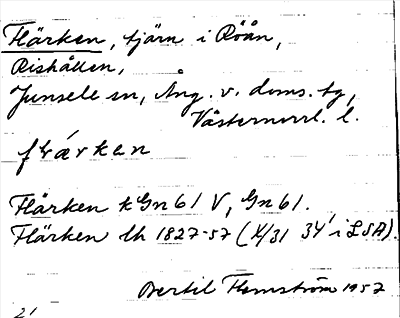 Flärken, tjärn i Röån,
Rishållen,
Junsele sn, Ång. v. doms. tg,
Västernorrl. l.
Flärken k Gn 61 V, Gn 61.
Flärken lh 1827-57 (4/31 34' i LSA).
Bertil Flemström 1957